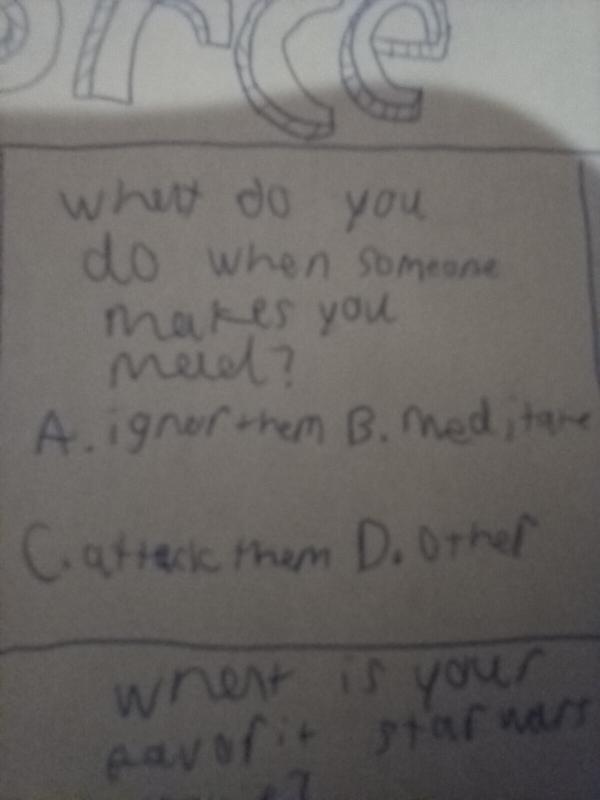 orce
what do you
do when someone
makes you
mad?
A. ignor them B. meditate
C. attack them D. other
what is your
favorit star wars